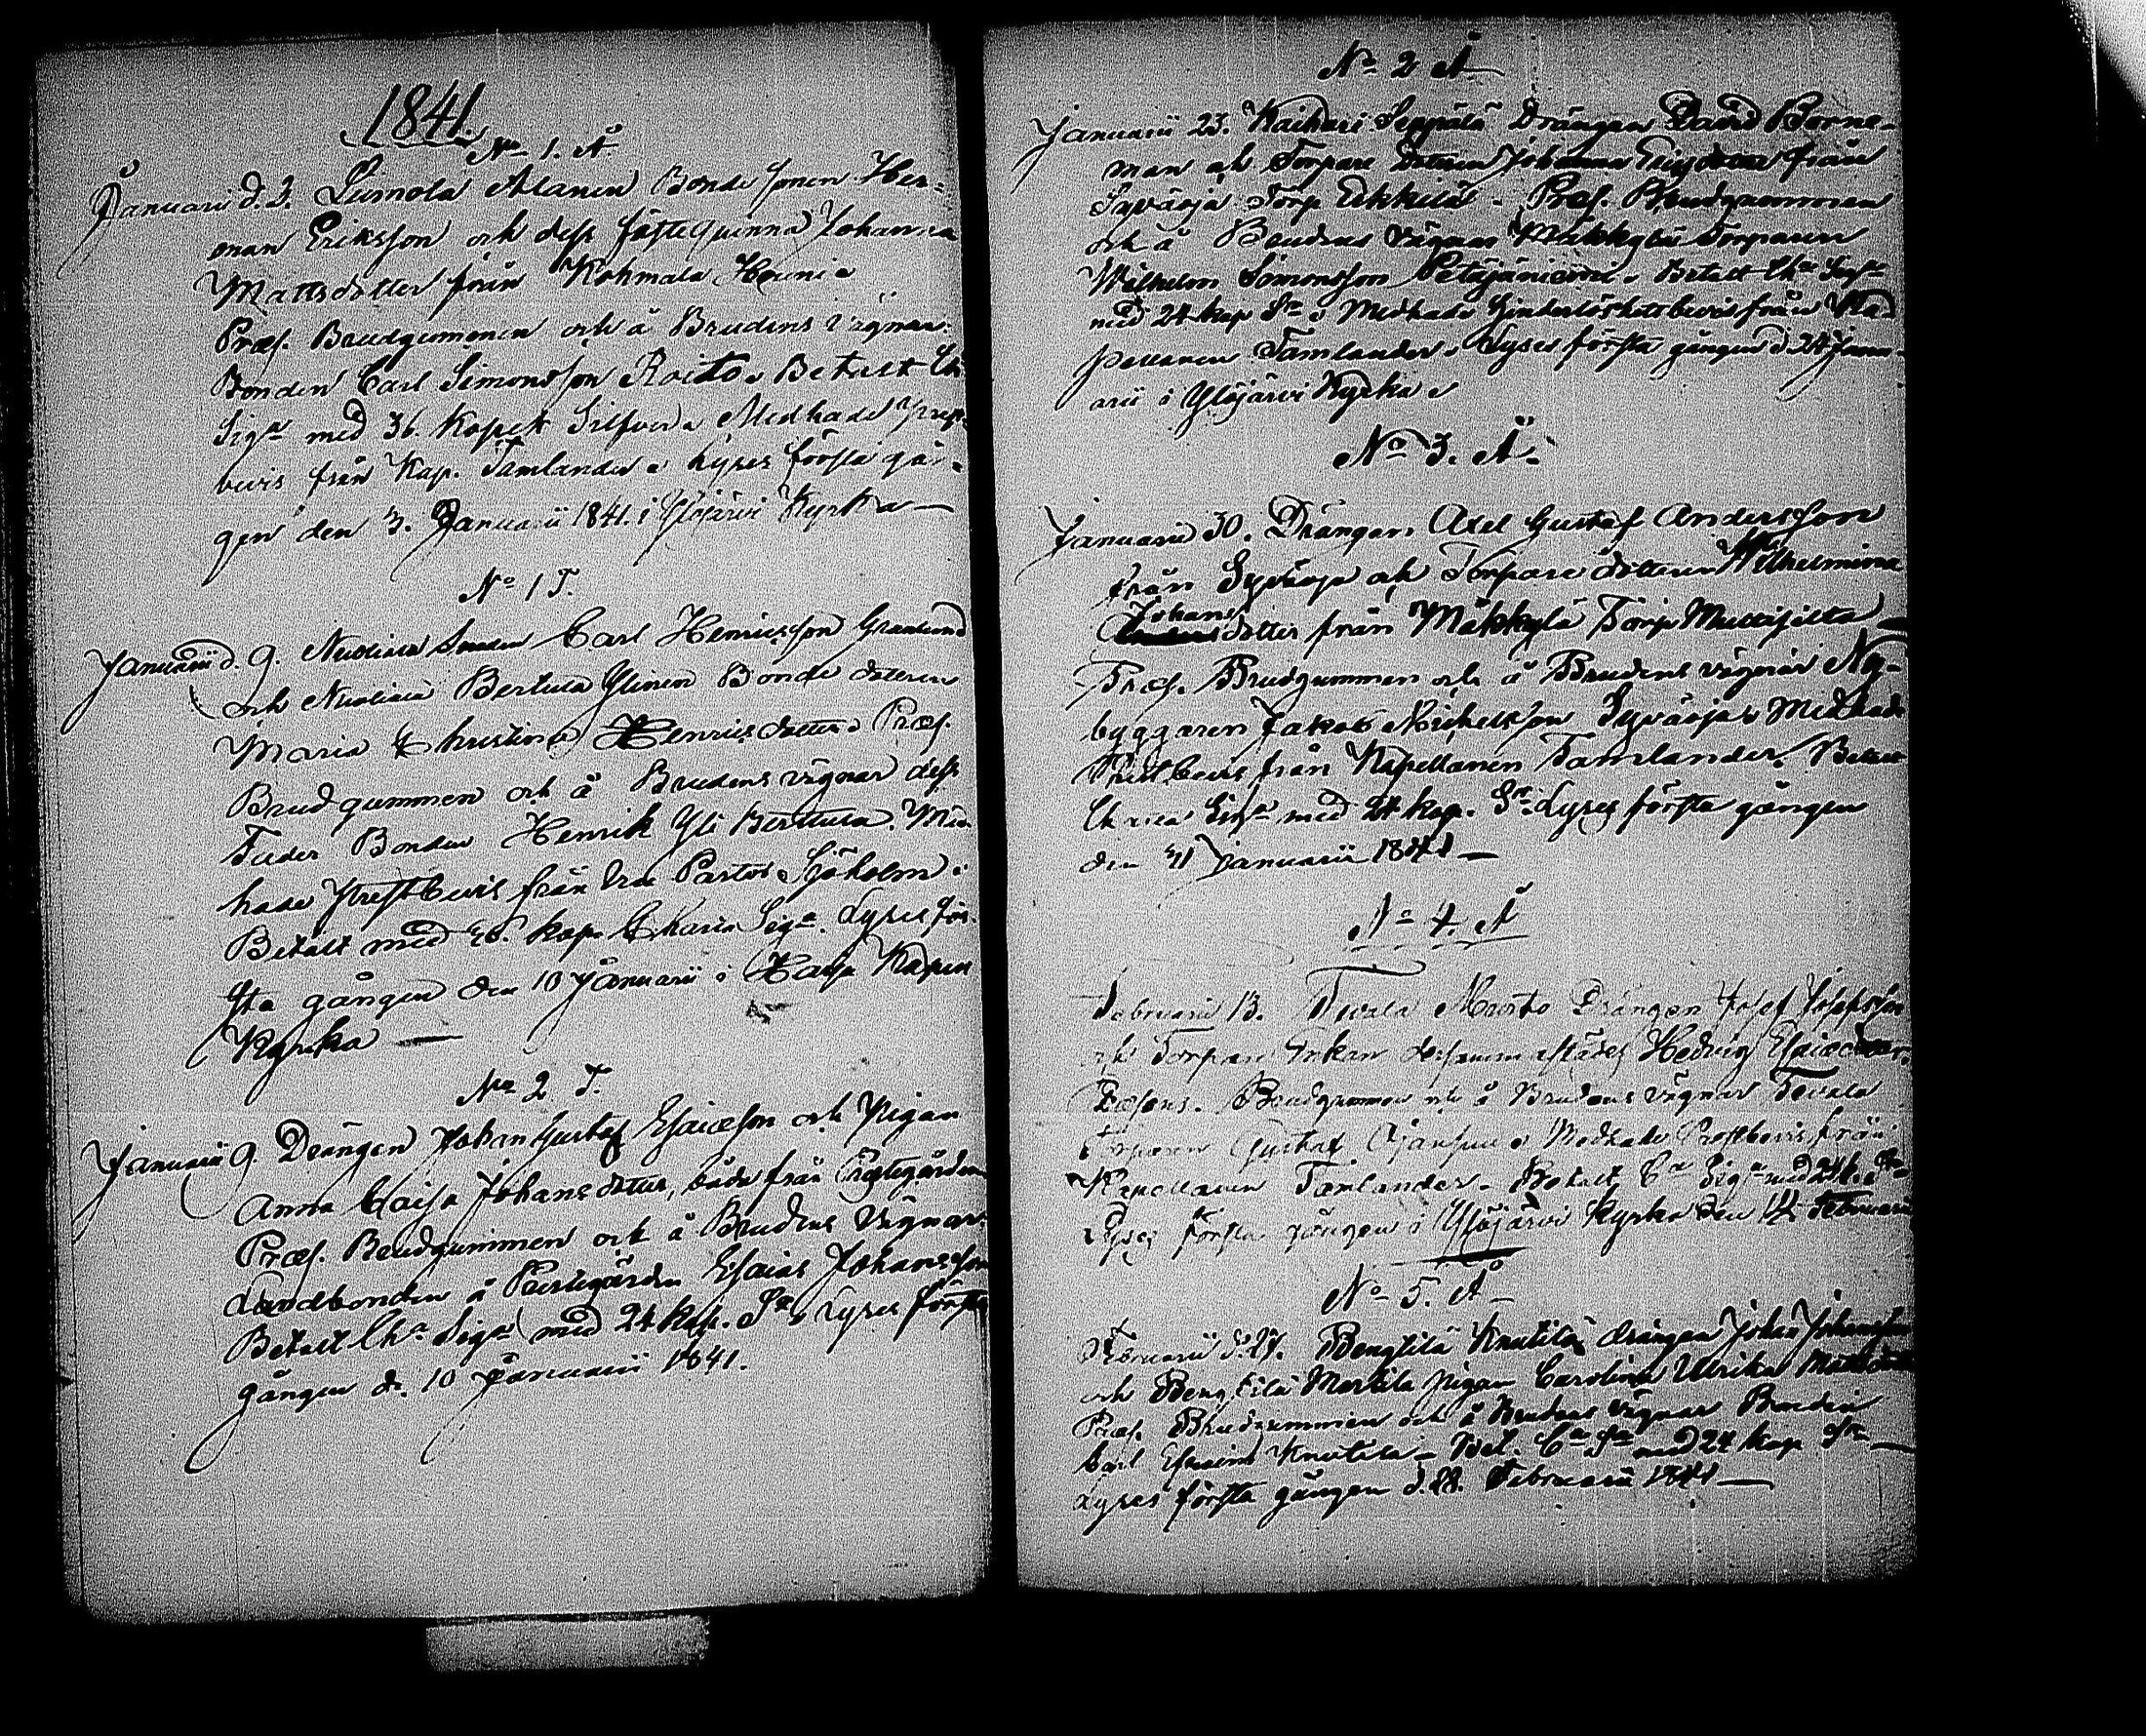 1841.
No 1. Å.
Januarii d. 2. Limola Alanen Bonde sonen Her-
man Eriksson och dess fästeqvinna Johanna
Mattsdotter från Kohmala Heuni.
Præs. Brudgummen och å Brudens vägnar
Bonden Carl Simonsson Roito. Betalt Ch.
Sigt med 36. Kopek Silfver. Medhade
bevis från Kap. Tamlander. Lyses första gån-
gen den 3. Januarii 1841. i Ylöjärvi Kyrka —
No 1 T.
Januarii d. 9. Carl Henricsson Granlund
och Berttula Ylinen Bonde dotteren
Maria Christina Henricsdotter. Præs.
Brudgummen och å Brudens vägnar dess
Fader Bonden Henrik Yli Berttula. Med
hade Prestbevis från Pastor Sjöholm.
Betalt med kop. Charta Sigt. Lyses för-
sta gången den 10 Januarii i Kapell
Kyrka —
No 2 T.
Januarii 9. Drängen Johan Gustaf Esaiæson och Pigan
Anna Caisa Johansdotter, både från Prestegården
Præs. Brudgummen och å Brudens vägnar
Landbonden å Prestegården Esaias Johansson
Betalt Cha Sigt med 24 kop. Sr. Lyses första
gången d. 10 Januarii 1841.
No 2 Å
Januarii 23. Kaihari Seppälä Drängen David Borne-
man och Torpare dotteren Johanna från
Syväoja Torp Erkkilä. Præs. Brudgummen
och å Brudens vägnar Mäkkylä Torparen
Wilhelm Simonsson Petäjäniemi. Betalt Cha Sigt
med 24 kop Sr. Medhade Hinderlöshetsbevis från Ka-
pellanen Tamlander. Lyses första gången d 24 Janu-
arii i Ylöjärvi Kyrka.
No 3. Å.
Januarii 30. Drängen Axel Gustaf Andersson
från Syväoja och Torpare dotteren Wilhelmina
Johans
dotter från Mäkkylä Torp Mattisilta —
Præs. Brudgummen och å Brudens vägnar Ny-
byggaren Jakob Michelsson Syväoja. Medhade
Prestbevis från Kapellanen Tamlander. Betalt
Charta Sigt med 24 kop. Sr. Lyses första gången
den 31 Januarii 1841 —
No 4. Å
Februarii 13. Tevala Drängen Josef Josefsson
och Torpare Enkan dersammastädes Hedvig Esaiædotter.
Præsens. Brudgummen och å Brudens vägnar Tevala
Torparen Gustaf Ojansuu. Medhade Prestbevis från
Kapellanen Tamlander. Betalt Ca Sigt med 24 k. Sr
Lyses första gången i Ylöjärvi Kyrka den 14 Februarii
No 5. Å
Februarii d. 27. Bengtilä Knutila drängen Johan Johansson
och Bengtilä Mattila pigan Carolina Ulrika
Præs. Brudgummen och å Brudens vägnar
Carl Knutila. Bet. Ca Sa med 24 kop Sr —
Lyses första gången d. 28. Februarii 1841 —